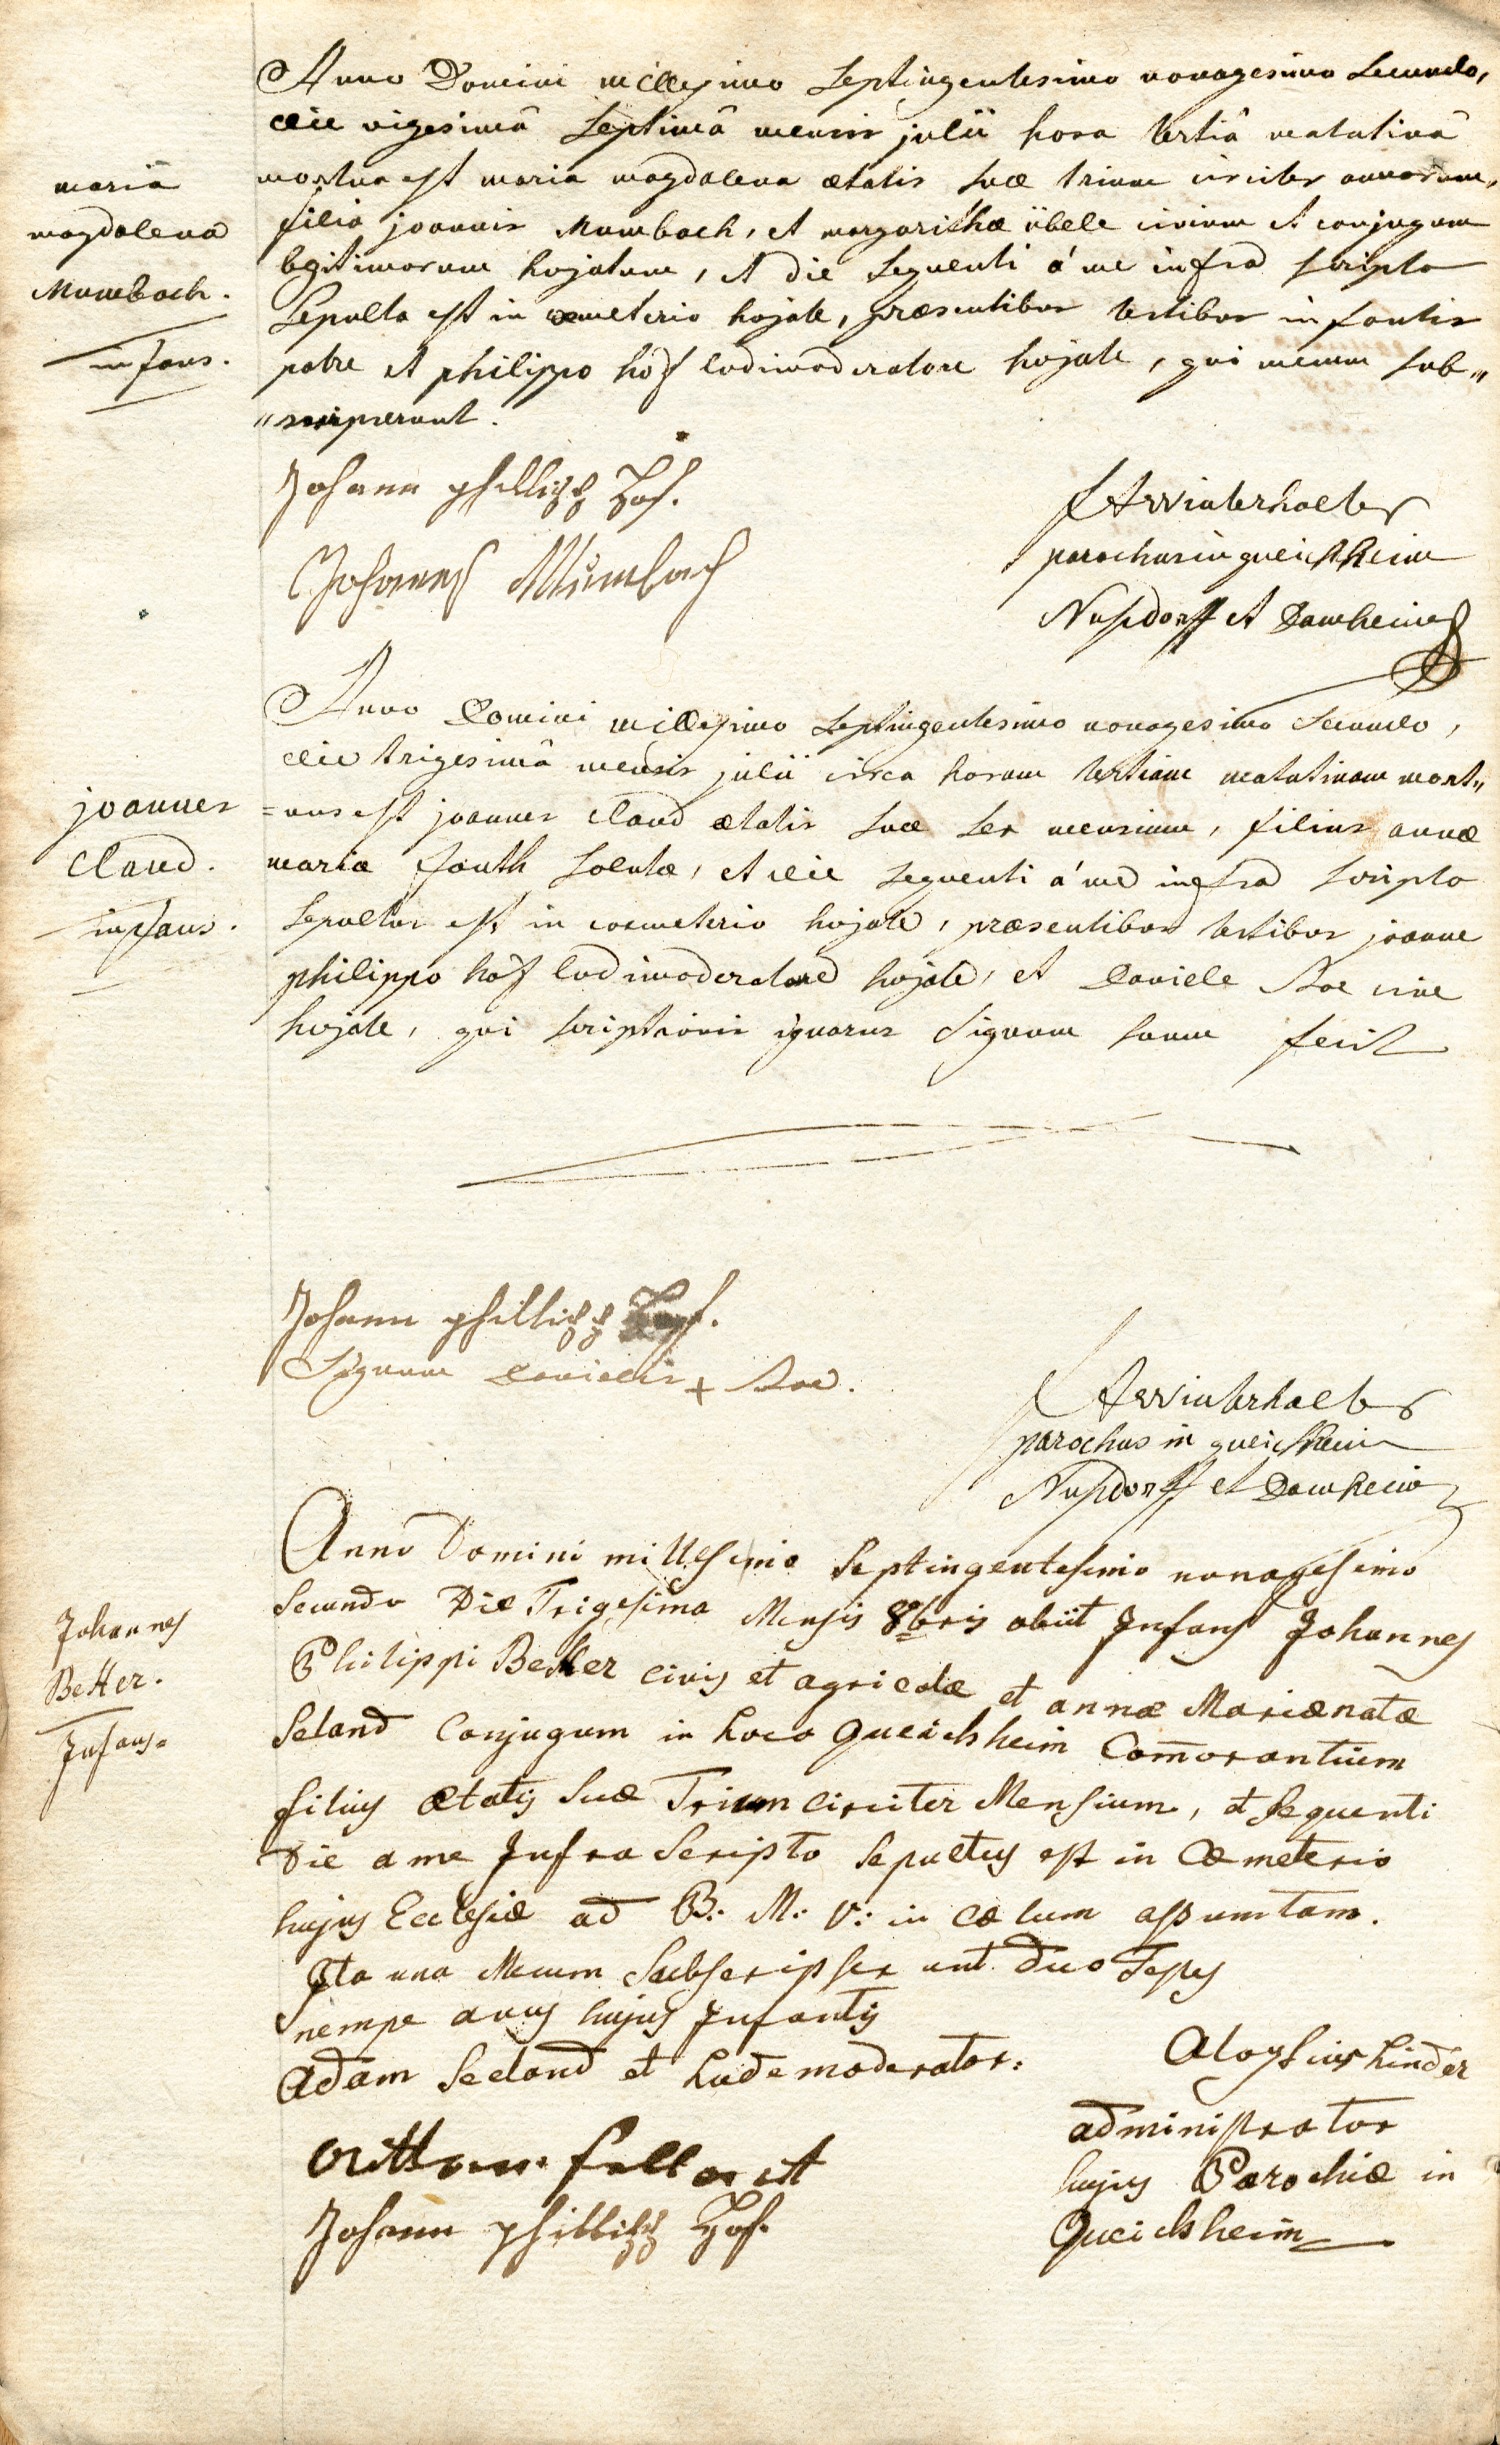 Anno Domini millesimo Septingentesimo nonagesimo Secundo,
die vigesimâ Septimâ mensis julii hora tertiâ matutinâ
maria
magdalena
Mumbach.
infans.
mortua est maria magdalena ætatis suæ trium circiter annorum,
filia joannis Mumbach, et margarithæ übele civium et conjugum
legitimorum hujatum, et die sequenti á me infra scripto
Sepulta est in cæmeterio hujate, præsentibus testibus infantis
patre et philippo hoff ludimoderatore hujate, qui mecum sub"
"scripserunt.
Johann phillipp Hof.
Johannes Mümbach
FA Winterhalter
parochus in queichheim
Nusdorff et Damheim
Anno Domini millesimo Septingentesimo nonagesimo Secundo,
die trigesimâ mensis julii circa horam tertiam matutinam mort"
joannes
Claud.
infans.
=uus est joannes Claud ætatis suæ sex mensium, filius annæ
mariæ fauth solutæ, et die sequenti á me infra scripto
Sepultus est in coemeterio hujate, præsentibus testibus joanne
philippo hoff ludimoderatore hujate, et Daniele cive
hujate, qui scriptionis ignarus Signum suum fecit
Johann phillipp Hof.
Signum Danielis +
FA Winterhalter
parochus in queichheim
Nusdorff et Damheim
Anno Domini millesimo Septingentesimo nonagesimo
Secundo Die Trigesima Mensis 8bris obiit Infans Johannes
Johannes
Better.
Infans.
Philippi Better civis et agricolæ et annæ Mariæ natæ
Seland Conjugum in Loco Queichsheim Com̄orantium
filius ætatis suæ Trium circiter Mensium, et Sequenti
Die a me Infra Scripto Sepultus est in Cæmeterio
hujus Ecclesiæ ad B: M: V: in cælum assumtam.
Ita una Mecum Subscripserunt duo Testes
nempe avus hujus Infantis
Adam Seeland et Ludemoderator:
Aloysius Linder
administrator
hujus Parochiæ in
Queichsheim
Johann phillipp Hof.